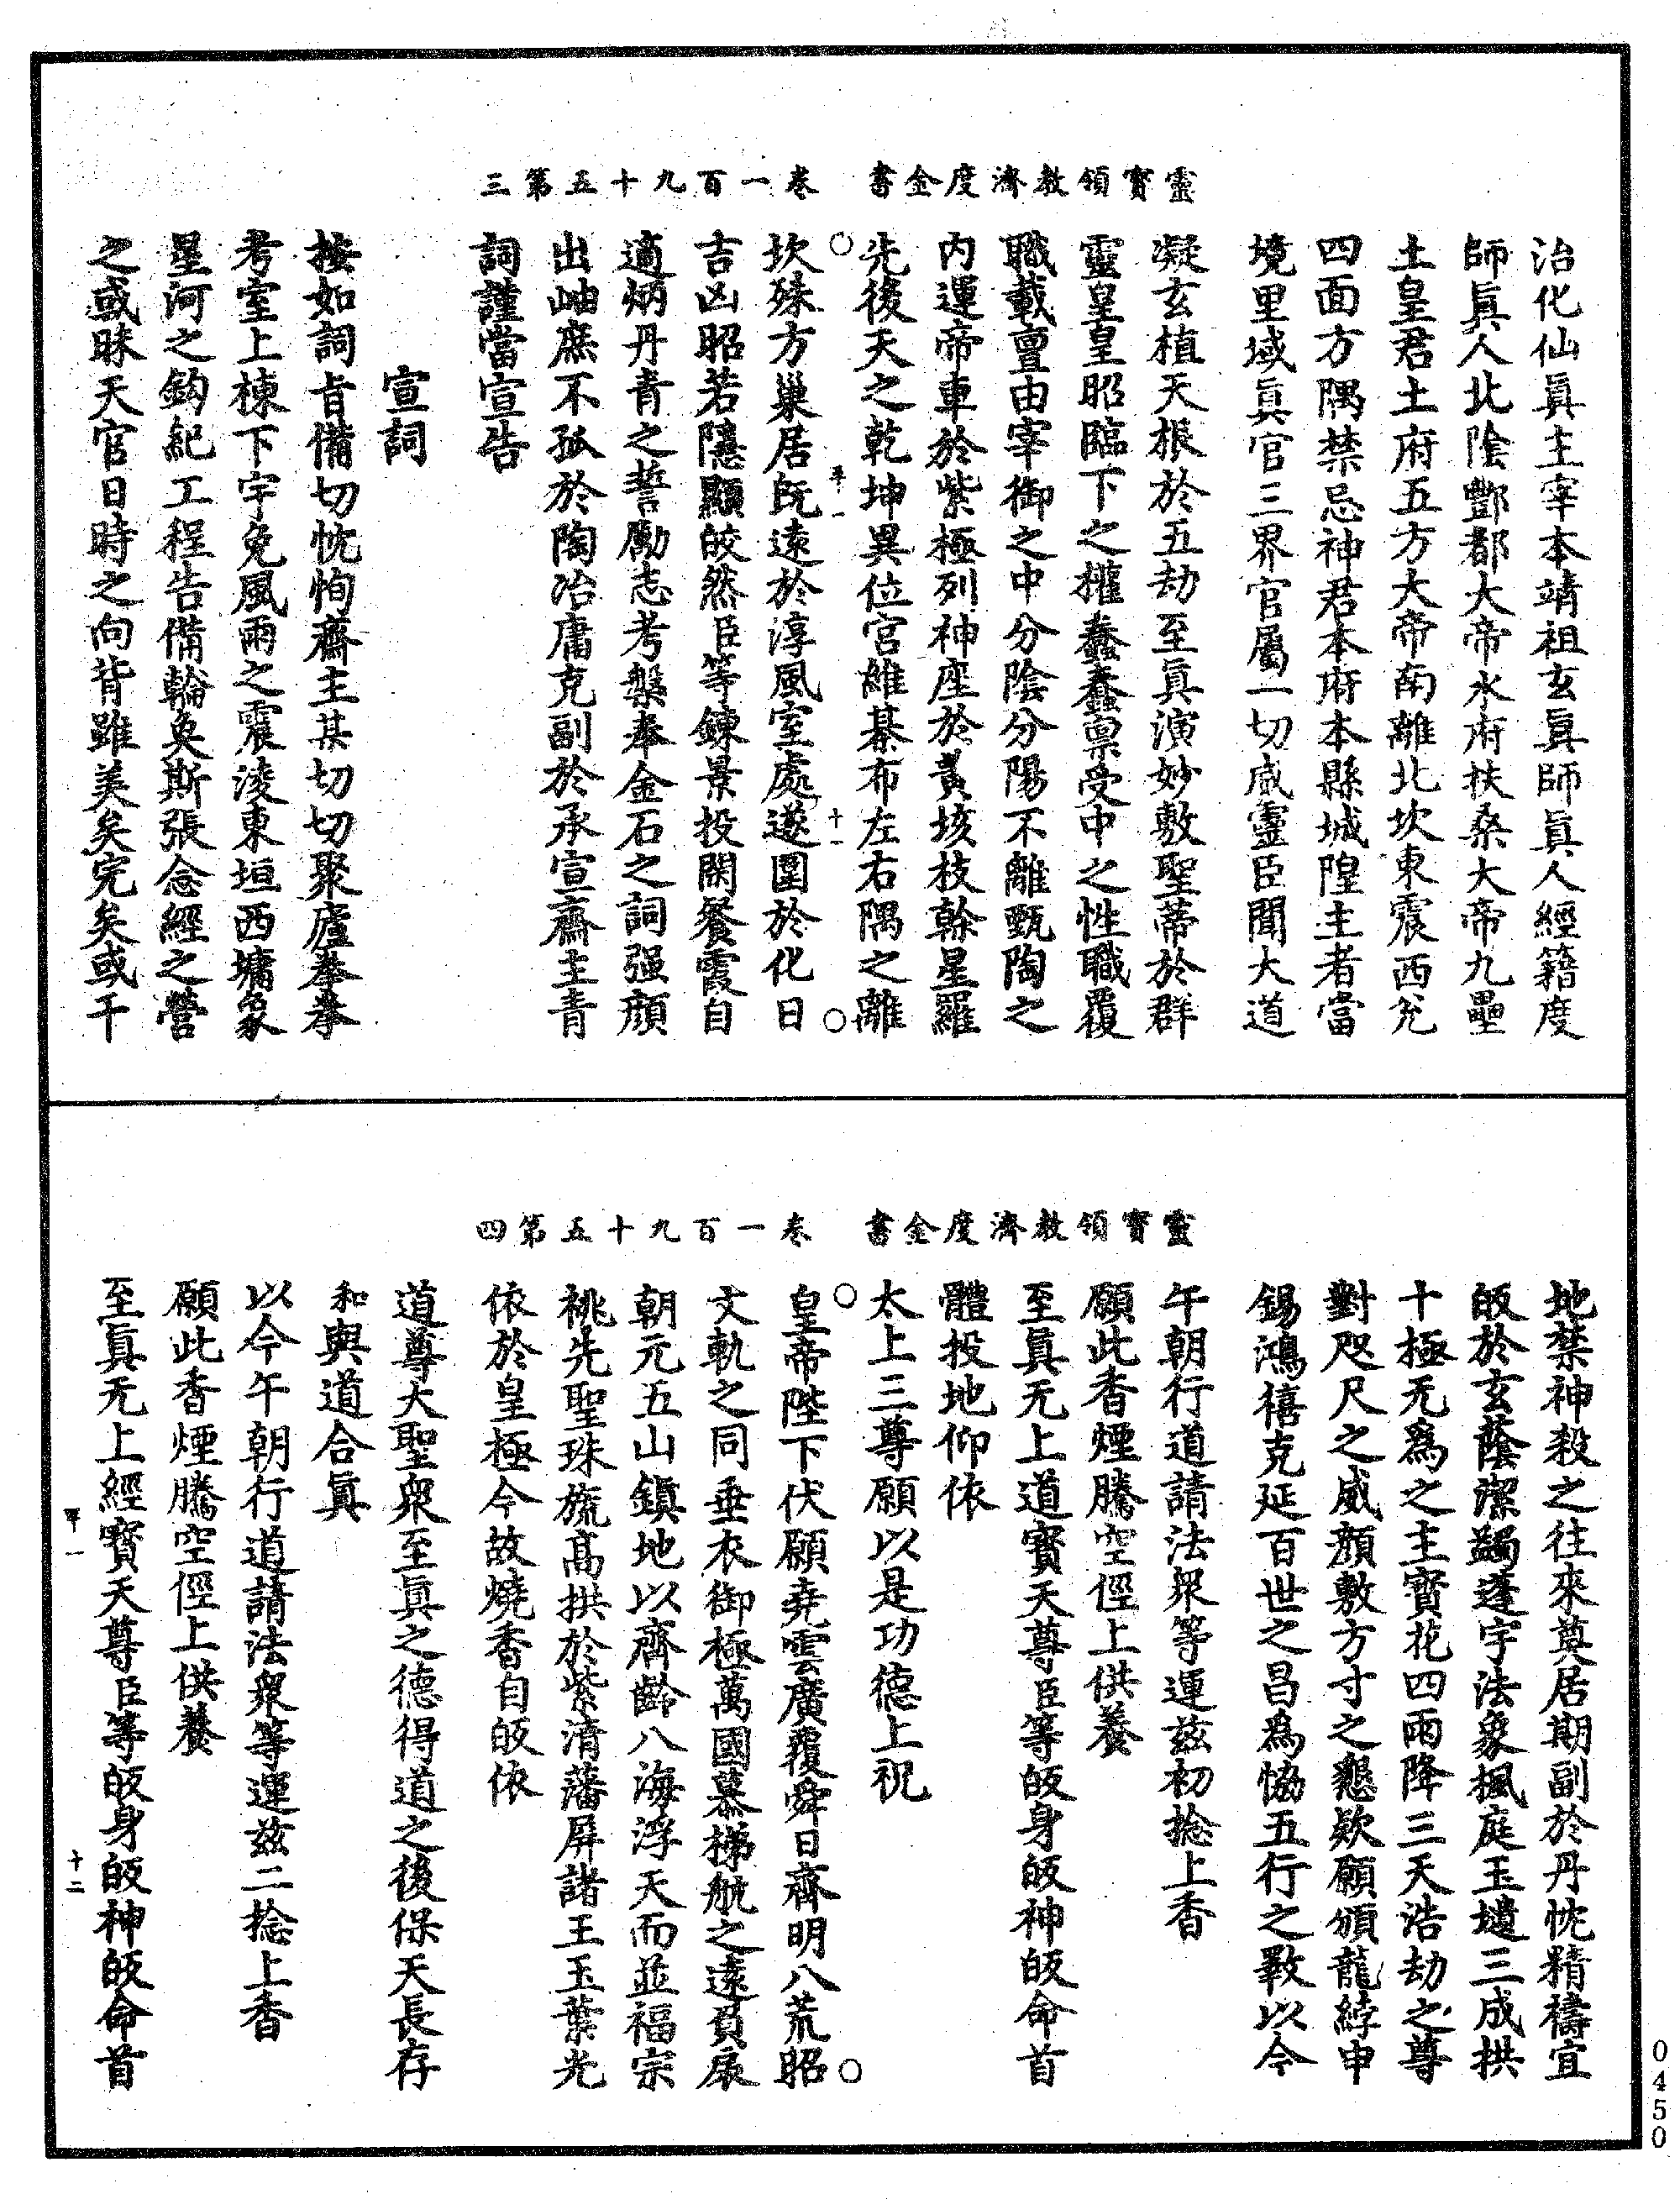 靈寶領教濟度金書　卷一百九十五第三
治化仙眞主宰本靖祖玄眞師眞人經籍度
師眞人北陰酆都大帝水府扶桑大帝九壘
土皇君土府五方大帝南離北坎東震西兌
四面方隅禁忌神君本府本縣城隍主者當
境里域眞官三界官屬一切威靈臣聞大道
凝玄植天根於五劫至眞演妙敷聖蒂於群
靈皇皇昭臨下之權蠢蠢禀受中之性職覆
職載亶由宰御之中分陰分陽不離甄陶之
内運帝車於紫極列神座於黃垓枝幹星羅
先後天之乾坤異位宮維碁布左右隅之離
平一　十一
坎殊方巢居旣遠於淳風室處遂圖於化日
吉凶昭若隱顯皎然臣等鍊景投閑餐霞自
適炳丹青之誓勵志考槃奉金石之詞强顔
出岫庶不孤於陶冶庸克副於承宣齋主青
詞謹當宣告
宣詞
按如詞旨備切忱恂齋主某切切聚廬拳拳
考室上棟下宇免風雨之震淩東垣西墉象
星河之鈎紀工程告備輪奐斯張念經之營
之或昧天官日時之向背雖美矣完矣或干
靈寶領教濟度金書　卷一百九十五第四
地禁神殺之往來奠居期副於丹忱精禱宜
皈於玄蔭潔蠲蓬宇法象楓庭玉壝三成拱
十極无爲之主寳花四雨降三天浩劫之尊
對咫尺之威顔敷方寸之懇欵願頒龍綍申
錫鴻禧克延百世之昌爲恊五行之斁以今
午朝行道請法衆等運兹初捻上香
願此香煙騰空徑上供養
至眞无上道寳天尊臣等皈身皈神皈命首
體投地仰依
太上三尊願以是功德上祝
皇帝陛下伏願堯雲廣覆舜日齊明八荒昭
文軌之同垂衣御極萬國慕梯航之遠負扆
朝元五山鎮地以齊齡八海浮天而並福宗
祧先聖珠旒高拱於紫清藩屏諸王玉葉光
依於皇極今故燒香自皈依
道尊大聖衆至眞之德得道之後保天長存
和與道合眞
以今午朝行道請法衆等運兹二捻上香
願此香煙騰空徑上供養
至眞无上經寳天尊臣等皈身皈神皈命首
平一　十二
0450